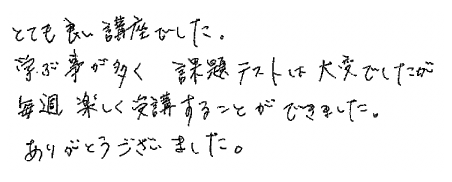 とても良い講座でした。
学ぶ事が多く 課題テストは大変でしたが
毎週 楽しく受講することができました。
ありがとうございました。